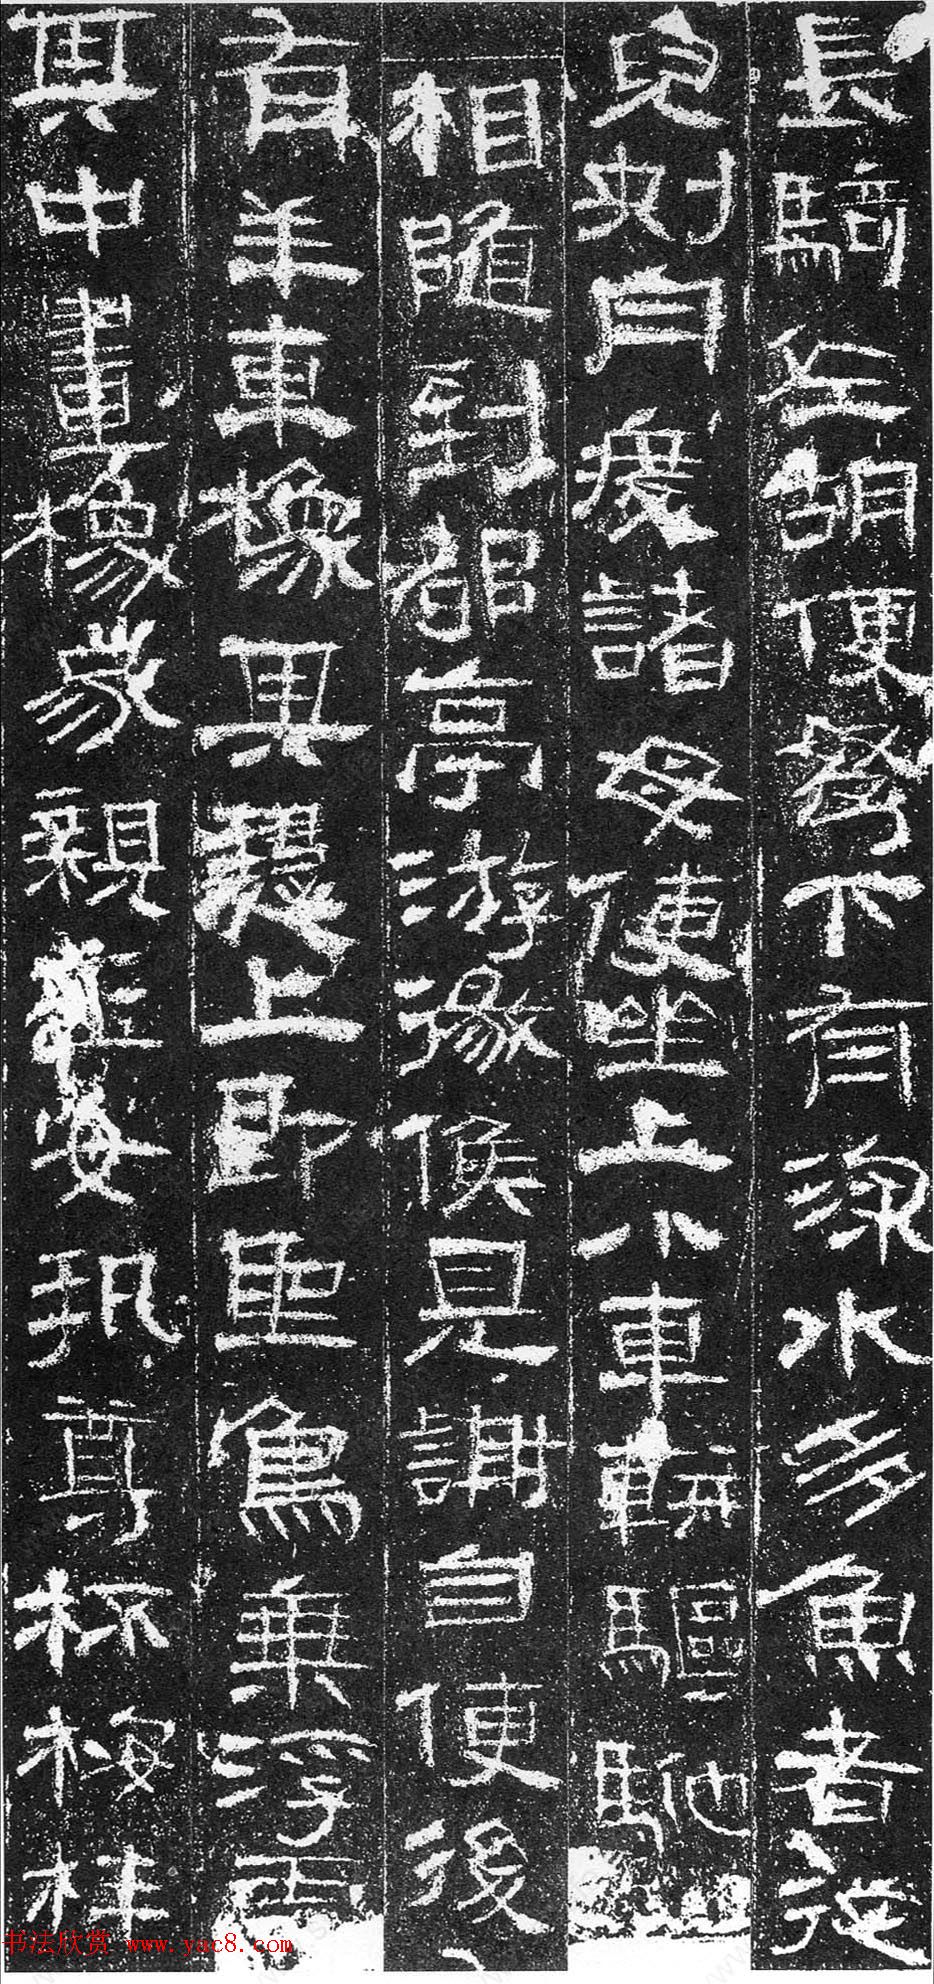 長騎佐胡使弩下有深水多魚者從
兒刾舟度諸母使坐上小車軿驅馳
相隨到都亭游徼候見謝自便後
有羊車橡其槥上即聖鳥乘浮雲
其中畫橡家親玉女執尊杯桉柈
书法欣赏 www.yac8.com